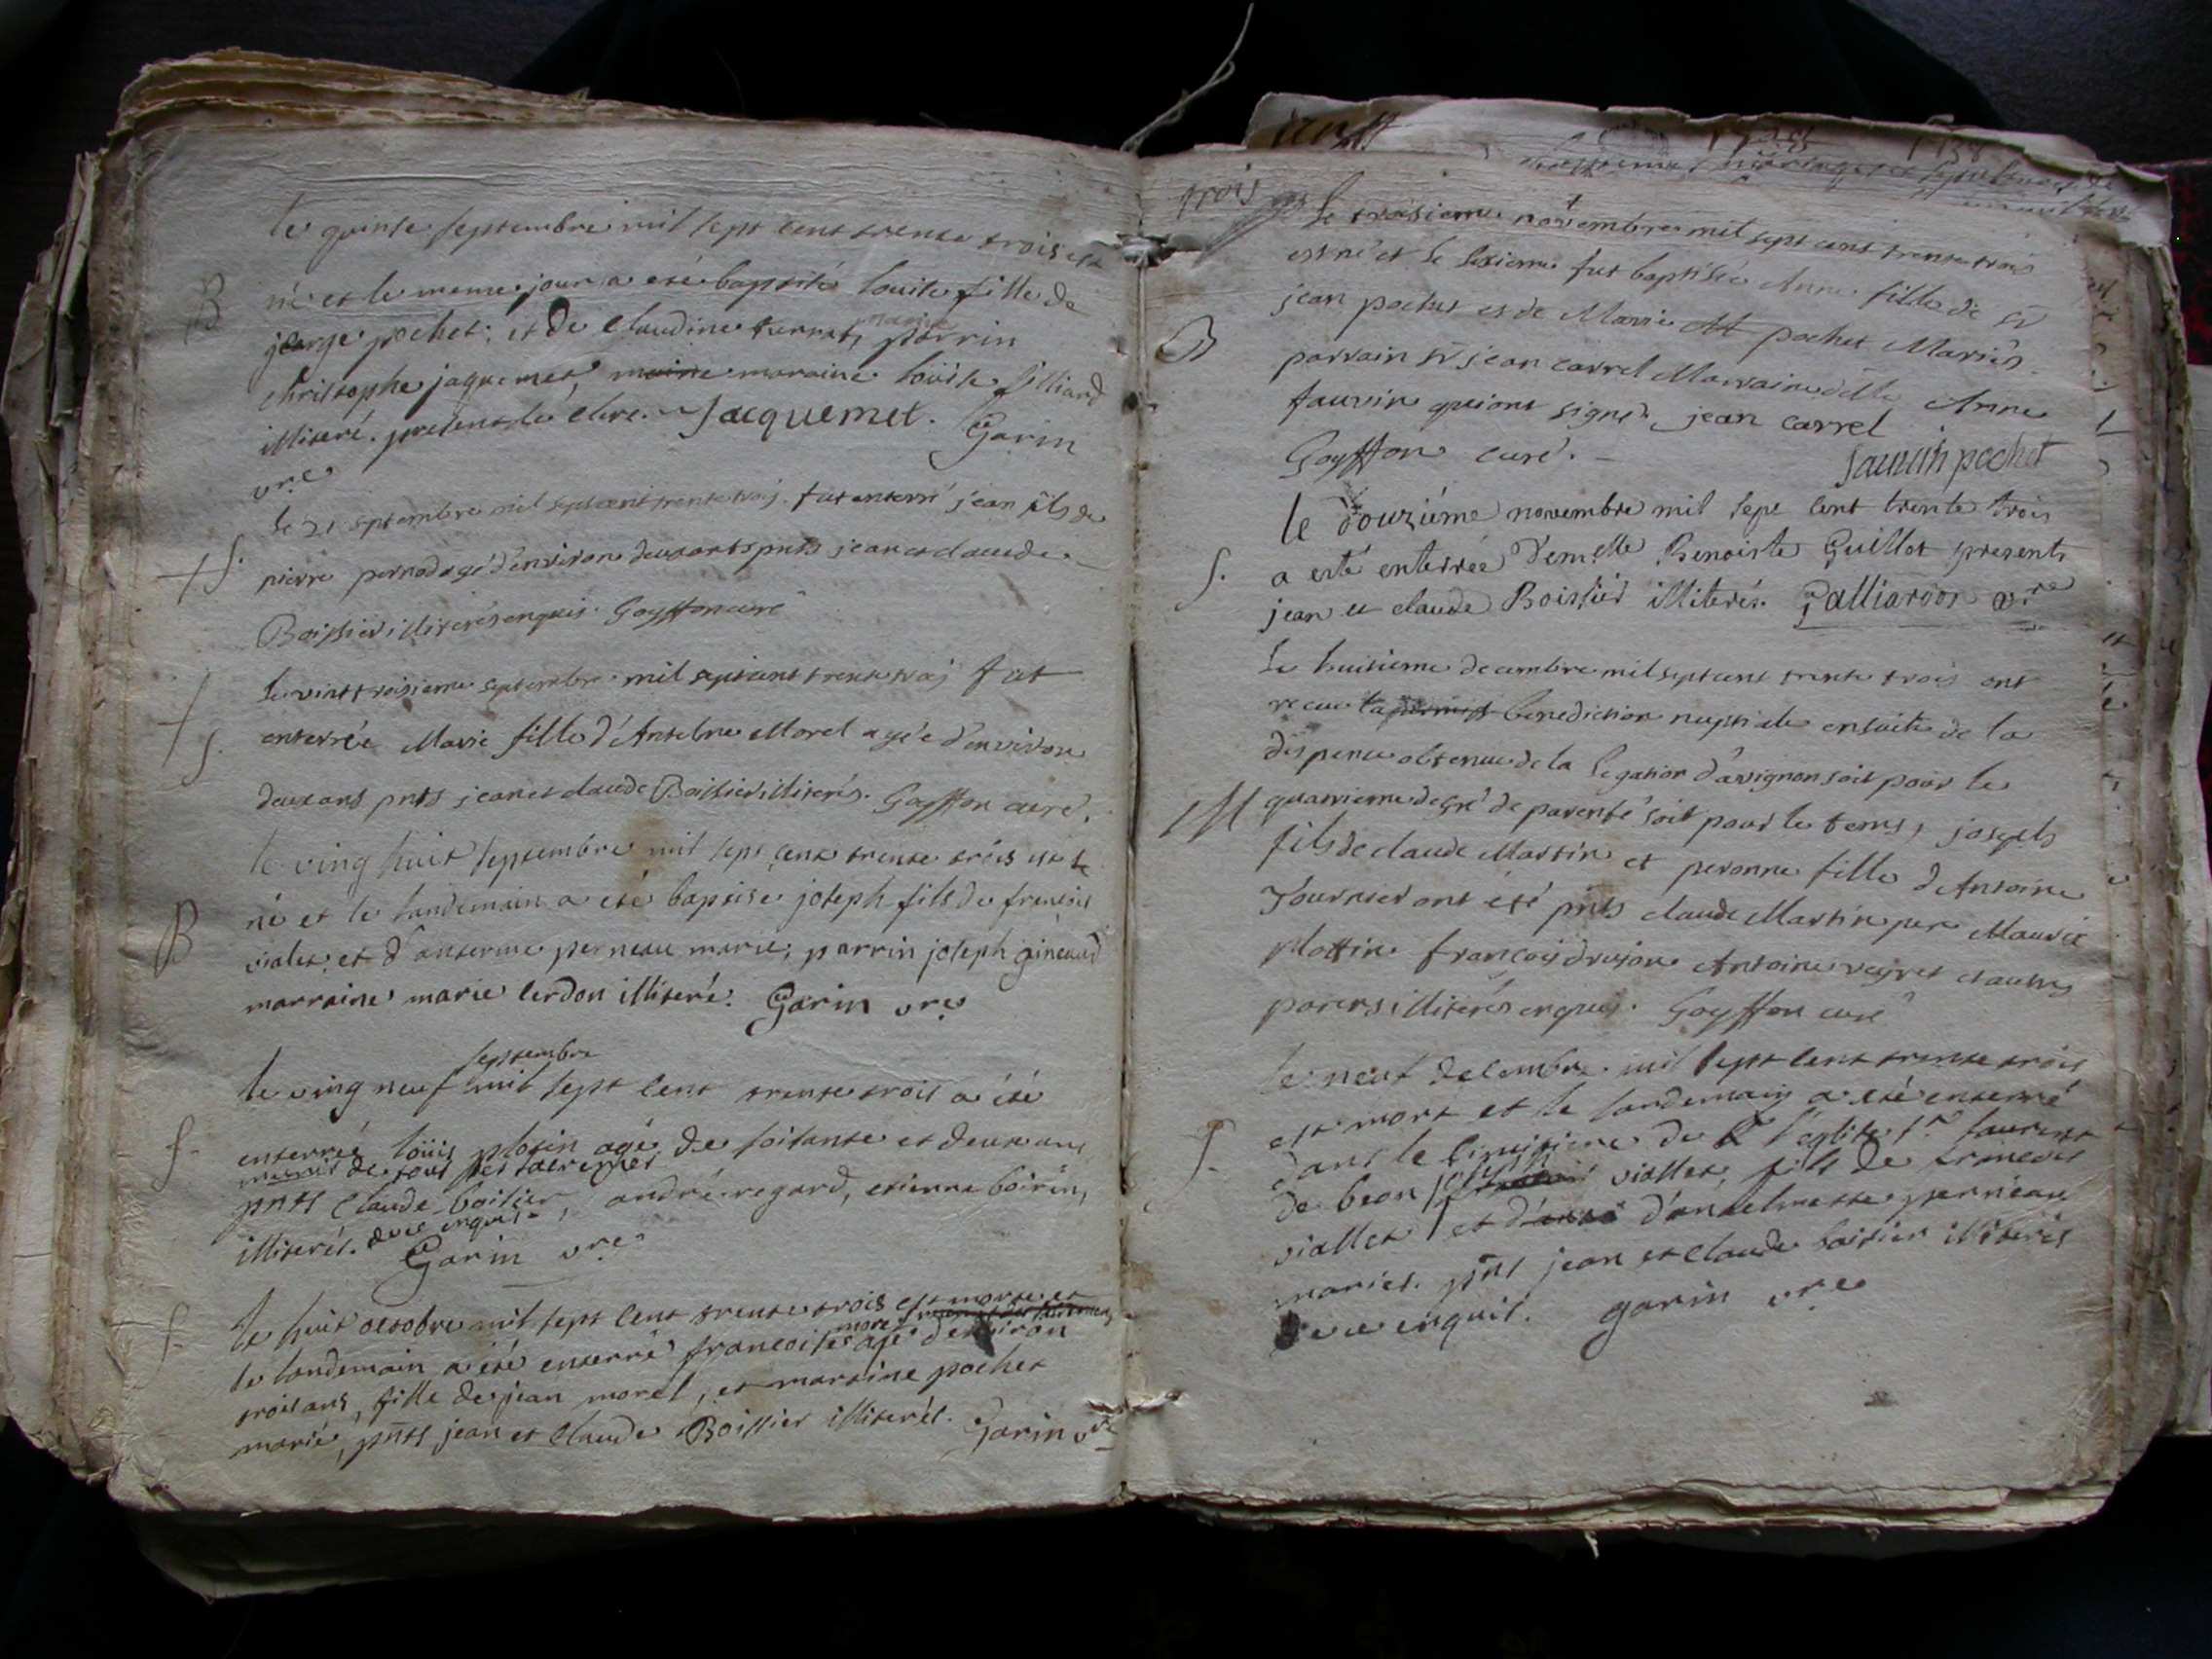 le quinse septembre mil sept cent trente trois est
B né et le meme jour a eté baptisé louise fille de
jorge pochet; et de Claudine turrat, mariés parrin
christophe jaquemet, maraine louise filliard
illiteré. present le clerc. Jacquemet. Garin
vre
le 21 septembre mil septcent trente trois fut enterré jean fils de
S. pierre pernod agé d'environ deux ants pnts jean et claude
Boissier illiterés enquis. Goyffon curé
le vint troisieme septembre mil septcent trente trois fut
S. enterrée Marie fille d'Antelme Morel agée d'environ
deux ans pnts jean et claude Boissier illiterés. Goyffon curé.
le ving huit septembre mil sept cent trente trois est
B né et le landemain a eté baptise joseph fils de francois
vialet, et d'anterme perneau marie, parrin joseph ginaud
marraine marie cerdon illiteré. Garin vre
septembre
le ving neuf mil sept cent trente trois a été
S. enterrée louis plotin agé de soisante et deux ans
munit de tous ses sacremet
pnts Claude boisier, andré regard, etienne boirin,
illiterés. de ce enquis. Garin vre
S. le huit octobre mil sept cent trente trois est morte et
le landemain a eté enterré francoise morel agé d'environ
trois ans, fille de jean morel, et martine pochet
marié, pnts jean et Claude Boissier illiterés. Garin vre
trois
le troisieme novembre mil sept cent trente trois
est né et le sixieme fut baptisée Anne fille de sr
B jean pochet et de Marie pochet Mariés
parrain sr jean carrel Marraine dlle Anne
fauvin qui ont signé. jean carrel
Goyffon curé. fauvin pochet
le douziéme novembre mil sept cent trente trois
S. a esté enterrée Demelle Benoiste Guillot presents
jean et claude Boissier illiterés. Galliardon vre
le huitieme decembre mil sept cent trente trois ont
receu la benediction nuptiale ensuite de la
dispence obtenue de la legation d'avignon soit pour le
M quatrieme degré de parenté soit pour le temps, joseph
fils de claude Martin et peronne fille d'Antoine
Tournier ont été pnts claude Martin pere Maurice
Plottin francois drujon Antoine veyret et autres
parens illiterés enquis. Goyffon curé
le neuf decembre mil sept cent trente trois
S. est mort et le landemain a eté enterré
dans le cimitiere de l'eglise st laurent
de beon joseph viallet, fils de francois
viallet et d'antelmette perneau
mariés. pnts jean et Claude boisier illiterés
de ce enquis. garin vre